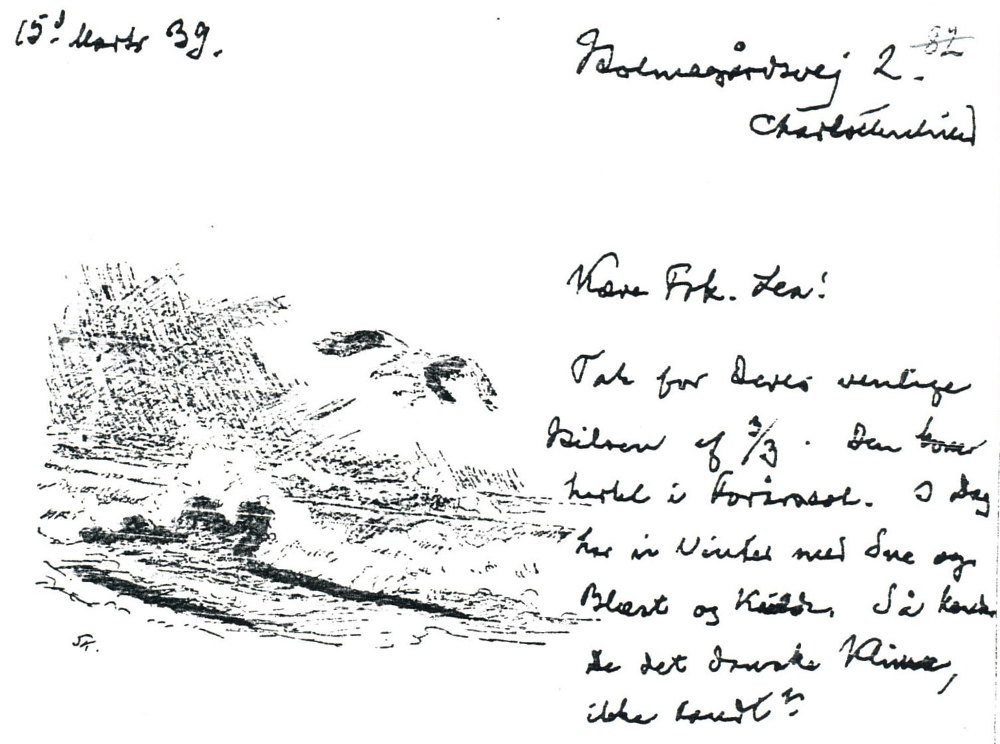 15' Marts 39.
82
Holmegårdsvej 2.
Charlottenlund
Kære Frk. Lea!
Tak for Deres venlige
Hilsen af 3/3. Den kom
hertil i Forårssol. I Dag
har vi Vinter med Sne og
Blæst og Kulde. Så kender
De det danske Klima,
ikke sandt?